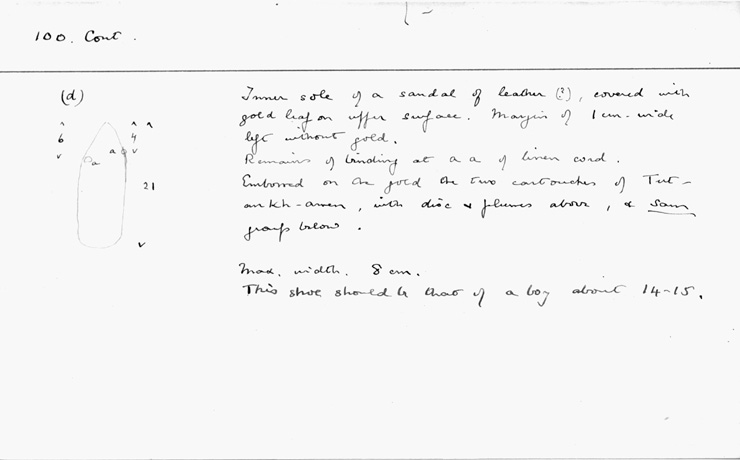 100. Cont.
(d)
Inner sole of a sandal of leather (?), covered with
gold leaf on upper surface. Margin of 1 cm. wide
left without gold.
Remains of binding at a a of linen cord.
Embossed on the gold the two cartouches of Tut-
ankh-amen, with disc & plumes above, & Sam
group below.
Max. width. 8 cm.
This shoe should be that of a boy about 14-15.
^ ^ ^
6 4
v a v
a
21
v